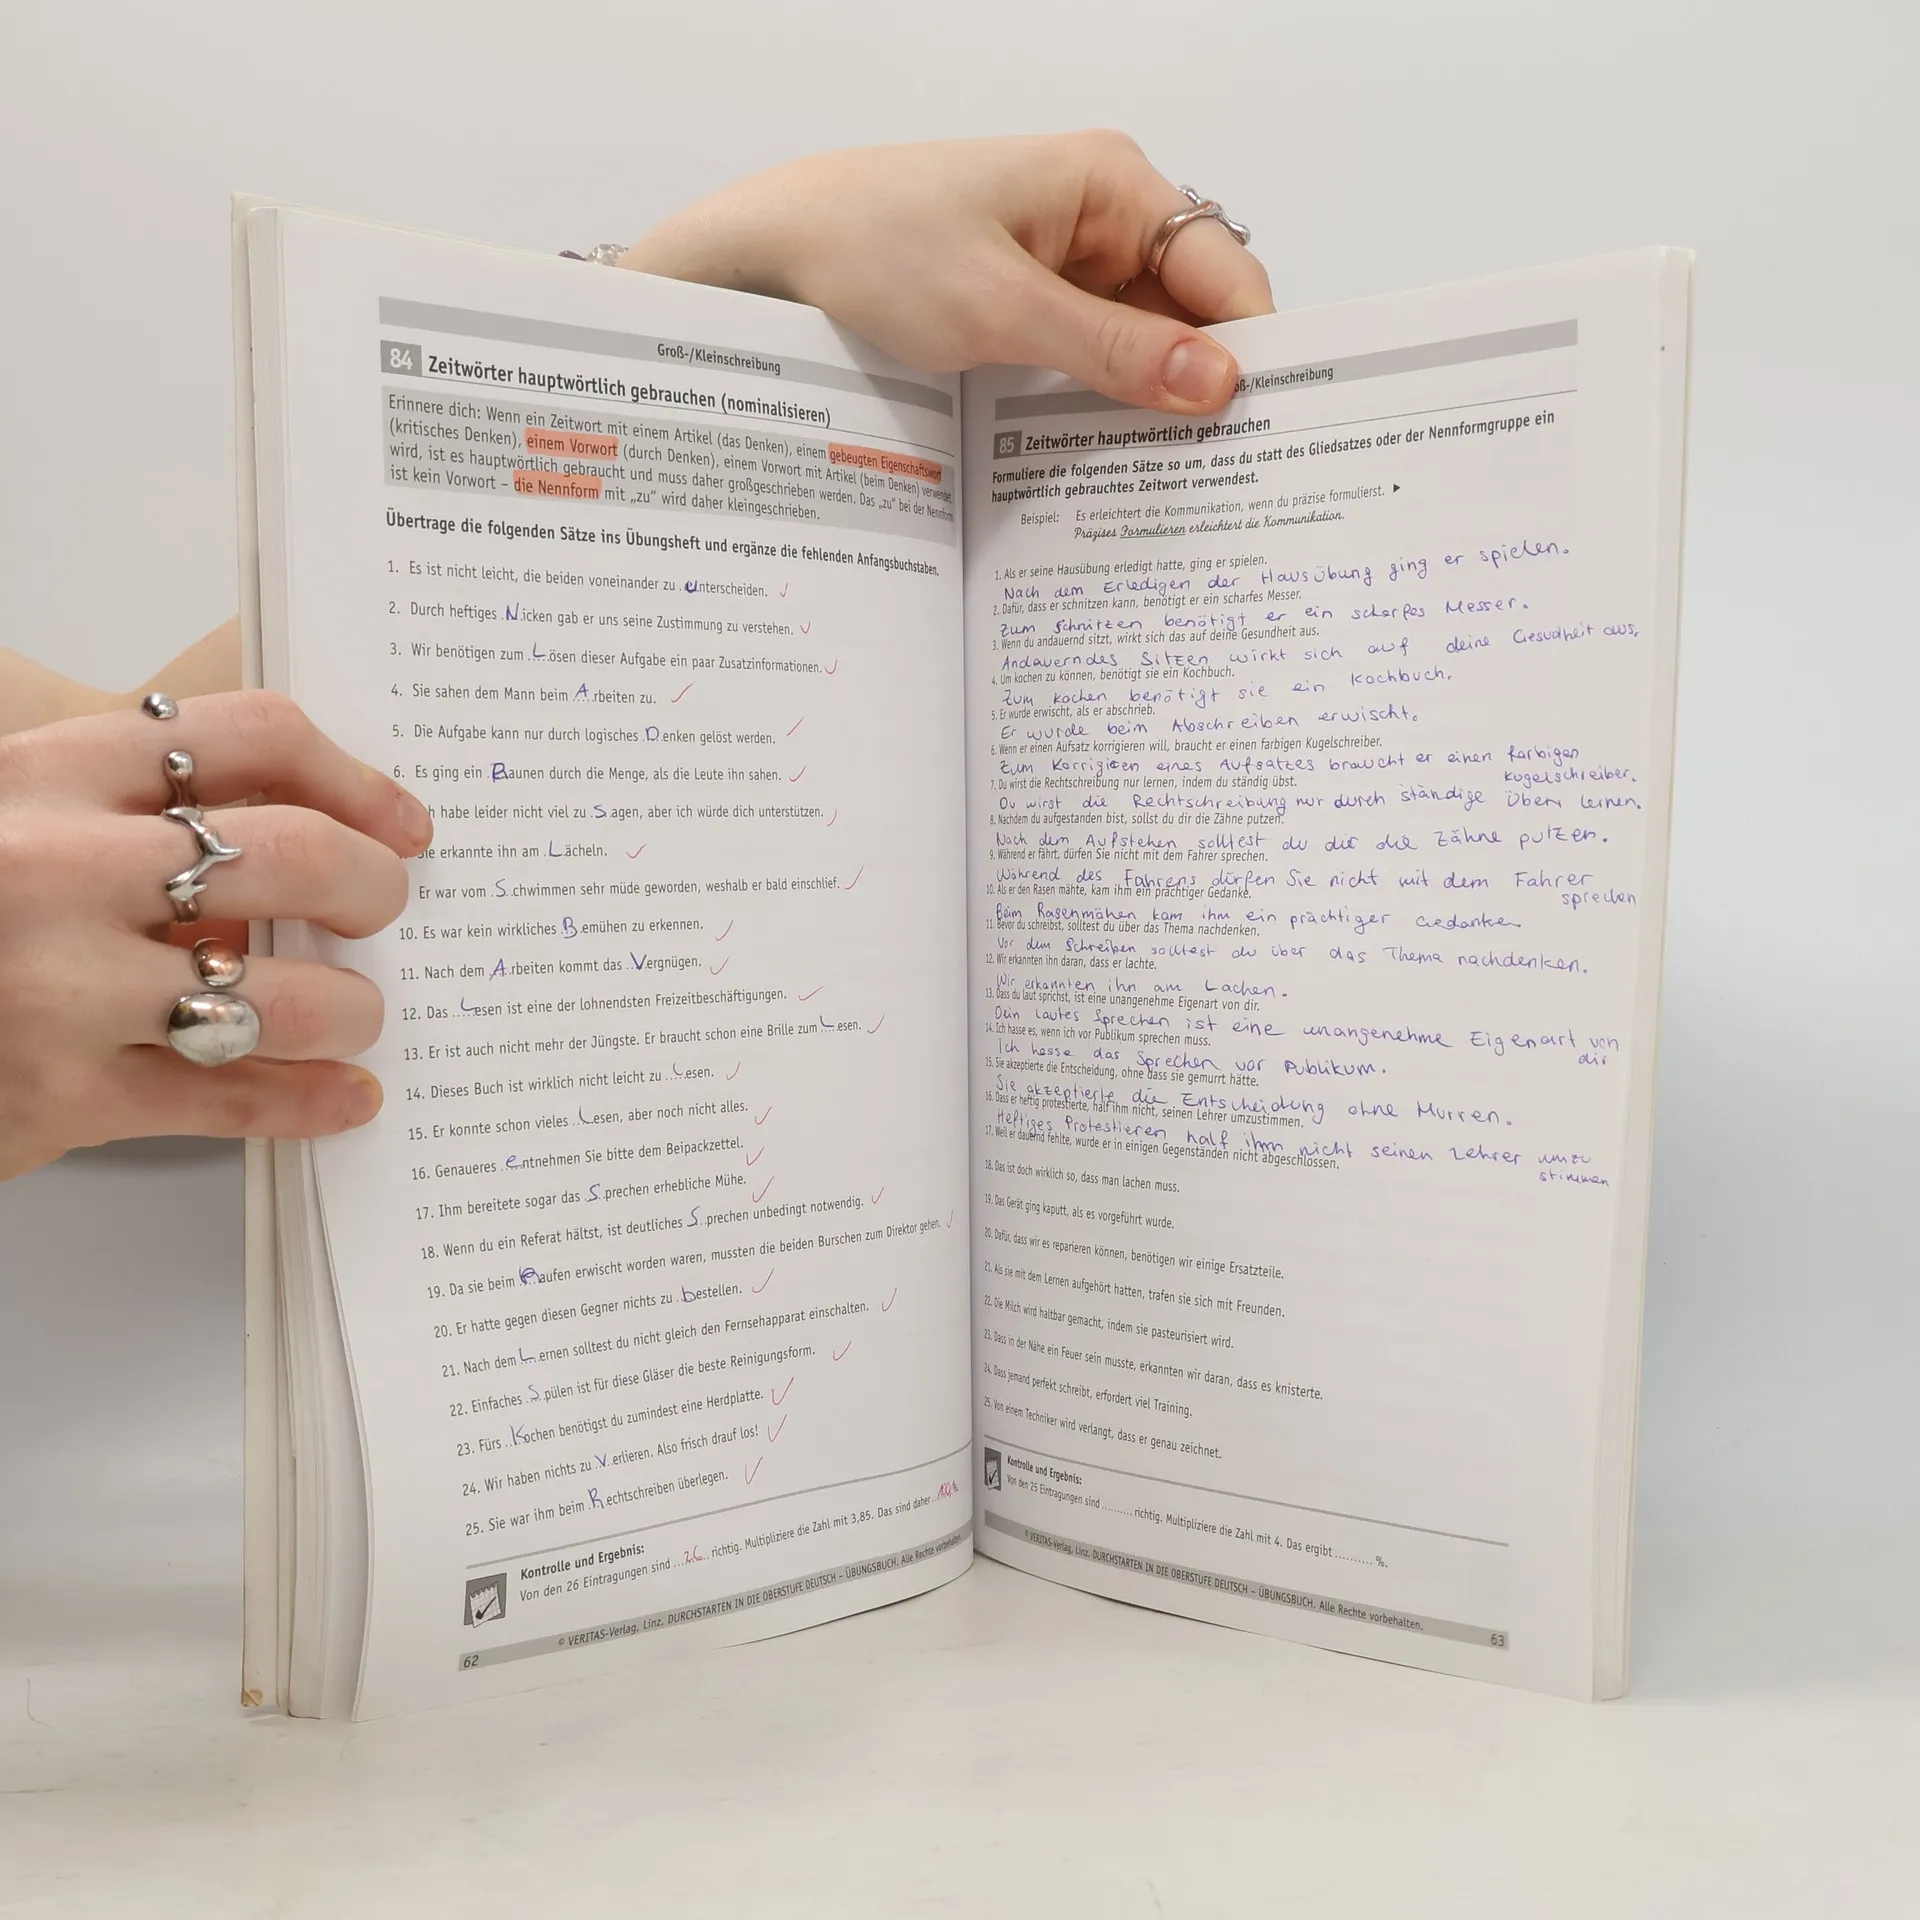 Groß-/Kleinschreibung
84 Zeitwörter hauptwörtlich gebrauchen (nominalisieren)
Erinnere dich: Wenn ein Zeitwort mit einem Artikel (das Denken), einem gebeugten Eigenschaftswort
(kritisches Denken), einem Vorwort (durch Denken), einem Vorwort mit Artikel (beim Denken) verwendet
wird, ist es hauptwörtlich gebraucht und muss daher großgeschrieben werden. Das „zu“ bei der Nennform
ist kein Vorwort – die Nennform mit „zu“ wird daher kleingeschrieben.
Übertrage die folgenden Sätze ins Übungsheft und ergänze die fehlenden Anfangsbuchstaben.
1. Es ist nicht leicht, die beiden voneinander zu unterscheiden.
2. Durch heftiges Nicken gab er uns seine Zustimmung zu verstehen.
3. Wir benötigen zum Lösen dieser Aufgabe ein paar Zusatzinformationen.
4. Sie sahen dem Mann beim Arbeiten zu.
5. Die Aufgabe kann nur durch logisches Denken gelöst werden.
6. Es ging ein Raunen durch die Menge, als die Leute ihn sahen.
h habe leider nicht viel zu Sagen, aber ich würde dich unterstützen.
Sie erkannte ihn am Lächeln.
Er war vom Schwimmen sehr müde geworden, weshalb er bald einschlief.
10. Es war kein wirkliches Bemühen zu erkennen.
11. Nach dem Arbeiten kommt das Vergnügen.
12. Das Lesen ist eine der lohnendsten Freizeitbeschäftigungen.
13. Er ist auch nicht mehr der Jüngste. Er braucht schon eine Brille zum Lesen.
14. Dieses Buch ist wirklich nicht leicht zu Lesen.
15. Er konnte schon vieles Lesen, aber noch nicht alles.
16. Genaueres entnehmen Sie bitte dem Beipackzettel.
17. Ihm bereitete sogar das Sprechen erhebliche Mühe.
18. Wenn du ein Referat hältst, ist deutliches Sprechen unbedingt notwendig.
19. Da sie beim Raufen erwischt worden waren, mussten die beiden Burschen zum Direktor gehen.
20. Er hatte gegen diesen Gegner nichts zu bestellen.
21. Nach dem Lernen solltest du nicht gleich den Fernsehapparat einschalten.
22. Einfaches Spülen ist für diese Gläser die beste Reinigungsform.
23. Fürs Kochen benötigst du zumindest eine Herdplatte.
24. Wir haben nichts zu Verlieren. Also frisch drauf los!
25. Sie war ihm beim Rechtschreiben überlegen.
Kontrolle und Ergebnis:
Von den 26 Eintragungen sind 26 richtig. Multipliziere die Zahl mit 3,85. Das sind daher 100%.
© VERITAS-Verlag, Linz. DURCHSTARTEN IN DIE OBERSTUFE DEUTSCH – ÜBUNGSBUCH. Alle Rechte vorbehalten.
62
oß-/Kleinschreibung
85 Zeitwörter hauptwörtlich gebrauchen
Formuliere die folgenden Sätze so um, dass du statt des Gliedsatzes oder der Nennformgruppe ein
hauptwörtlich gebrauchtes Zeitwort verwendest.
Beispiel: Es erleichtert die Kommunikation, wenn du präzise formulierst. ▶
Präzises Formulieren erleichtert die Kommunikation.
1. Als er seine Hausübung erledigt hatte, ging er spielen.
Nach dem Erledigen der Hausübung ging er spielen.
2. Dafür, dass er schnitzen kann, benötigt er ein scharfes Messer.
Zum Schnitzen benötigt er ein scharfes Messer.
3. Wenn du andauernd sitzt, wirkt sich das auf deine Gesundheit aus.
Andauerndes Sitzen wirkt sich auf deine Gesudheit aus.
4. Um kochen zu können, benötigt sie ein Kochbuch.
Zum Kochen benötigt sie ein Kochbuch.
5. Er wurde erwischt, als er abschrieb.
Er wurde beim Abschreiben erwischt.
6. Wenn er einen Aufsatz korrigieren will, braucht er einen farbigen Kugelschreiber.
Zum Korrigieren eines Aufsatzes braucht er einen farbigen
Kugelschreiber.
7. Du wirst die Rechtschreibung nur lernen, indem du ständig übst.
Du wirst die Rechtschreibung nur durch ständige Üben lernen.
8. Nachdem du aufgestanden bist, sollst du dir die Zähne putzen.
Nach dem Aufstehen solltest du dir die Zähne putzen.
9. Während er fährt, dürfen Sie nicht mit dem Fahrer sprechen.
Während des Fahrens dürfen Sie nicht mit dem Fahrer
sprechen
10. Als er den Rasen mähte, kam ihm ein prächtiger Gedanke.
Beim Rasenmähen kam ihm ein prächtiger Gedanken
11. Bevor du schreibst, solltest du über das Thema nachdenken.
Vor dem Schreiben solltest du über das Thema nachdenken.
12. Wir erkannten ihn daran, dass er lachte.
Wir erkannten ihn am Lachen.
13. Dass du laut sprichst, ist eine unangenehme Eigenart von dir.
Dein lautes Sprechen ist eine unangenehme Eigenart von
dir
14. Ich hasse es, wenn ich vor Publikum sprechen muss.
Ich hasse das Sprechen vor Publikum.
15. Sie akzeptierte die Entscheidung, ohne dass sie gemurrt hätte.
Sie akzeptierte die Entscheidung ohne Murren.
16. Dass er heftig protestierte, half ihm nicht, seinen Lehrer umzustimmen.
Heftiges Protestieren half ihm nicht seinen Lehrer umzu
stimmen
17. Weil er dauernd fehlte, wurde er in einigen Gegenständen nicht abgeschlossen.
18. Das ist doch wirklich so, dass man lachen muss.
19. Das Gerät ging kaputt, als es vorgeführt wurde.
20. Dafür, dass wir es reparieren können, benötigen wir einige Ersatzteile.
21. Als sie mit dem Lernen aufgehört hatten, trafen sie sich mit Freunden.
22. Die Milch wird haltbar gemacht, indem sie pasteurisiert wird.
23. Dass in der Nähe ein Feuer sein musste, erkannten wir daran, dass es knisterte.
24. Dass jemand perfekt schreibt, erfordert viel Training.
25. Von einem Techniker wird verlangt, dass er genau zeichnet.
Kontrolle und Ergebnis:
Von den 25 Eintragungen sind .......... richtig. Multipliziere die Zahl mit 4. Das ergibt .......... %.
© VERITAS-Verlag, Linz. DURCHSTARTEN IN DIE OBERSTUFE DEUTSCH – ÜBUNGSBUCH. Alle Rechte vorbehalten.
63